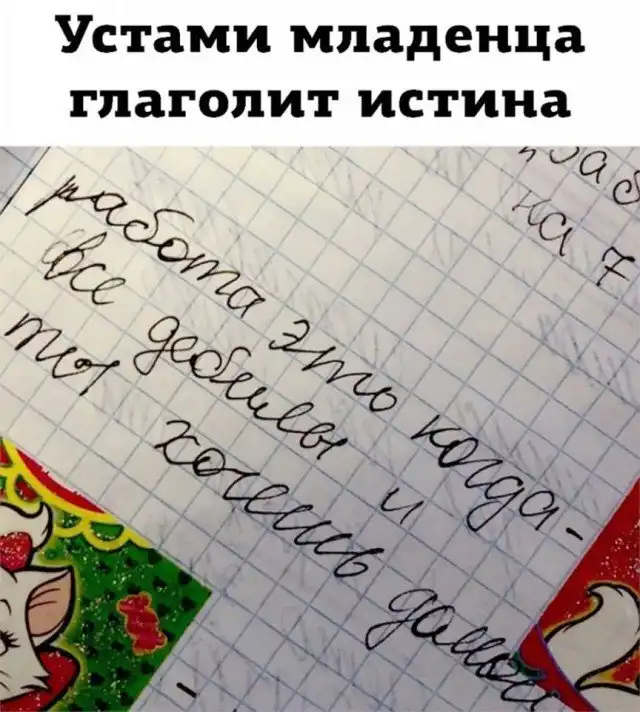 Устами младенца
глаголит истина
на 7
работа это когда-
все дебилы и
ты хочешь домой